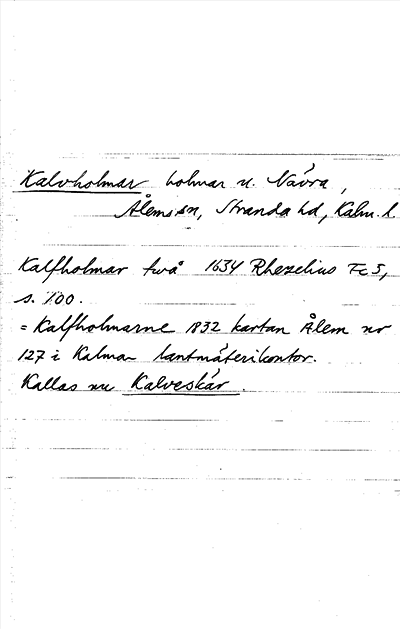 Kalvholmar holmar u. Nävra,
Ålems sn, Stranda hd, Kalm. l.
Kalfholmar två 1634 Rhezelius Fc 5,
s. 100.
= Kalfholmarne 1832 kartan Ålem nr
127 i Kalmar lantmäterikontor.
Kallas nu Kalveskär.